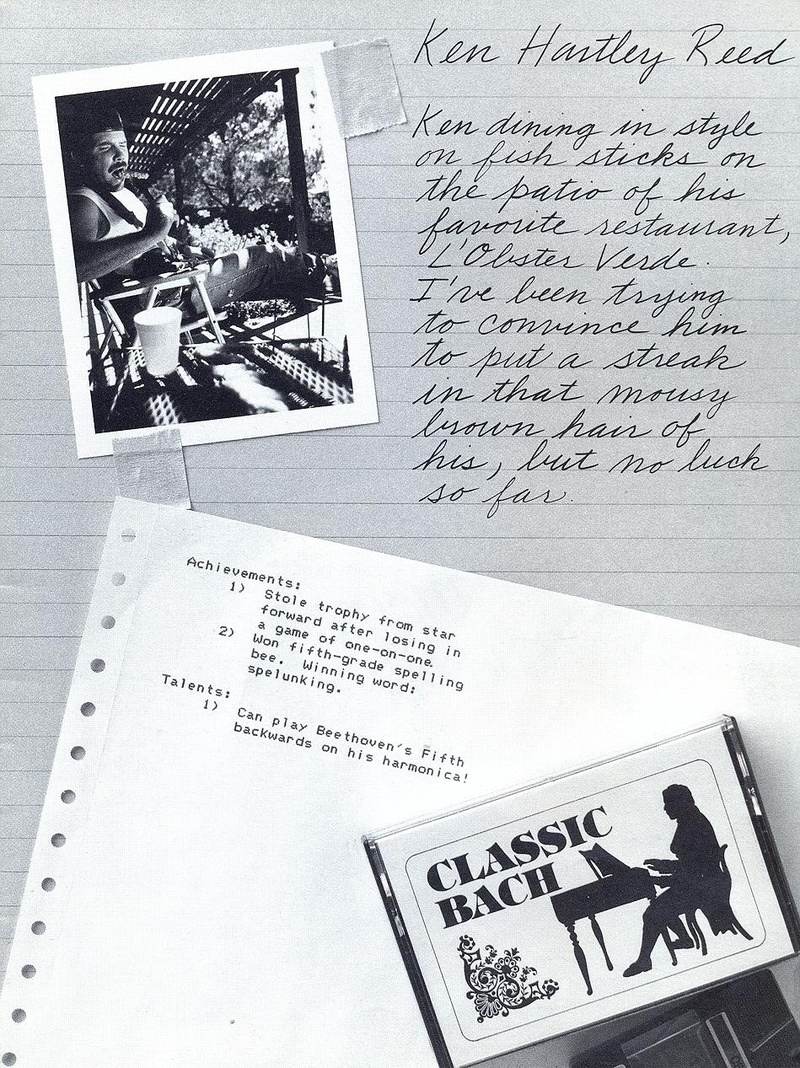 Ken Hartley Reed
Ken dining in style
on fish sticks on
the patio of his
favorite restaurant,
L'Obster Verde.
I've been trying
to convince him
to put a streak
in that mousy
brown hair of
his, but no luck
so far.
Achievements:
1) Stole trophy from star
forward after losing in
a game of one-on-one.
2) Won fifth-grade spelling
bee. Winning word:
spelunking.
Talents:
1) Can play Beethoven's Fifth
backwards on his harmonica!
CLASSIC
BACH